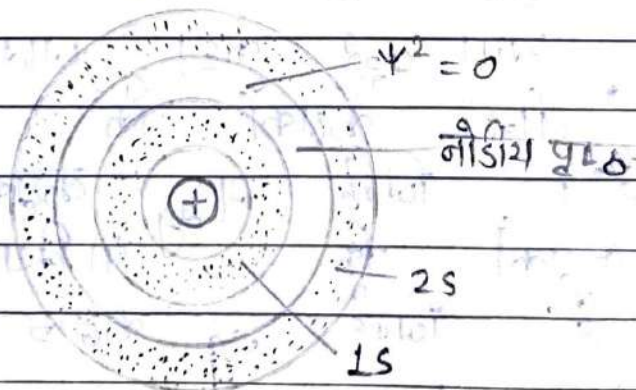 ψ² = 0
नोडीय पृष्ठ
+
2s
1s